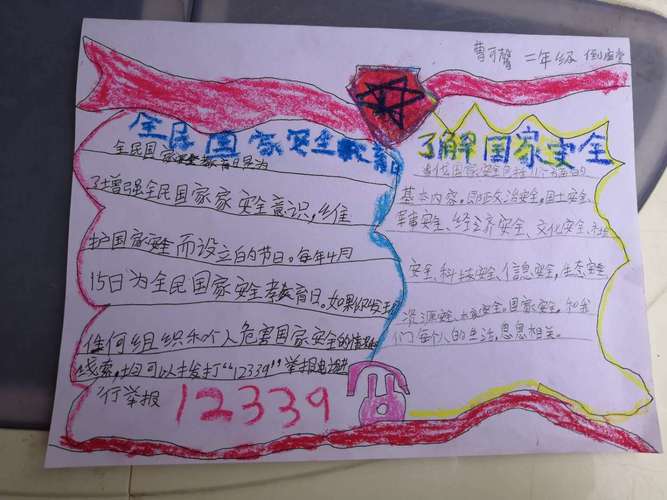 曹可馨 二年级
全民国家安全教育
全民国家安全教育日是为
了增强全民国家家安全意识,维
护国家安全而设立的节日。每年4月
15日为全民国家安全教育日。如果你发现
任何组织和个人危害国家安全的情况和
线索,都可以拨打“12339”举报电话进
行举报
12339
了解国家安全
当代国家安全包括
基本内容,即政治安全,国土安全、
军事安全、经济安全、文化安全、社会
安全,科技安全、信息安全,生态安全
资源安全、核安全。国家安全,和我
们每个人的生活,息息相关。